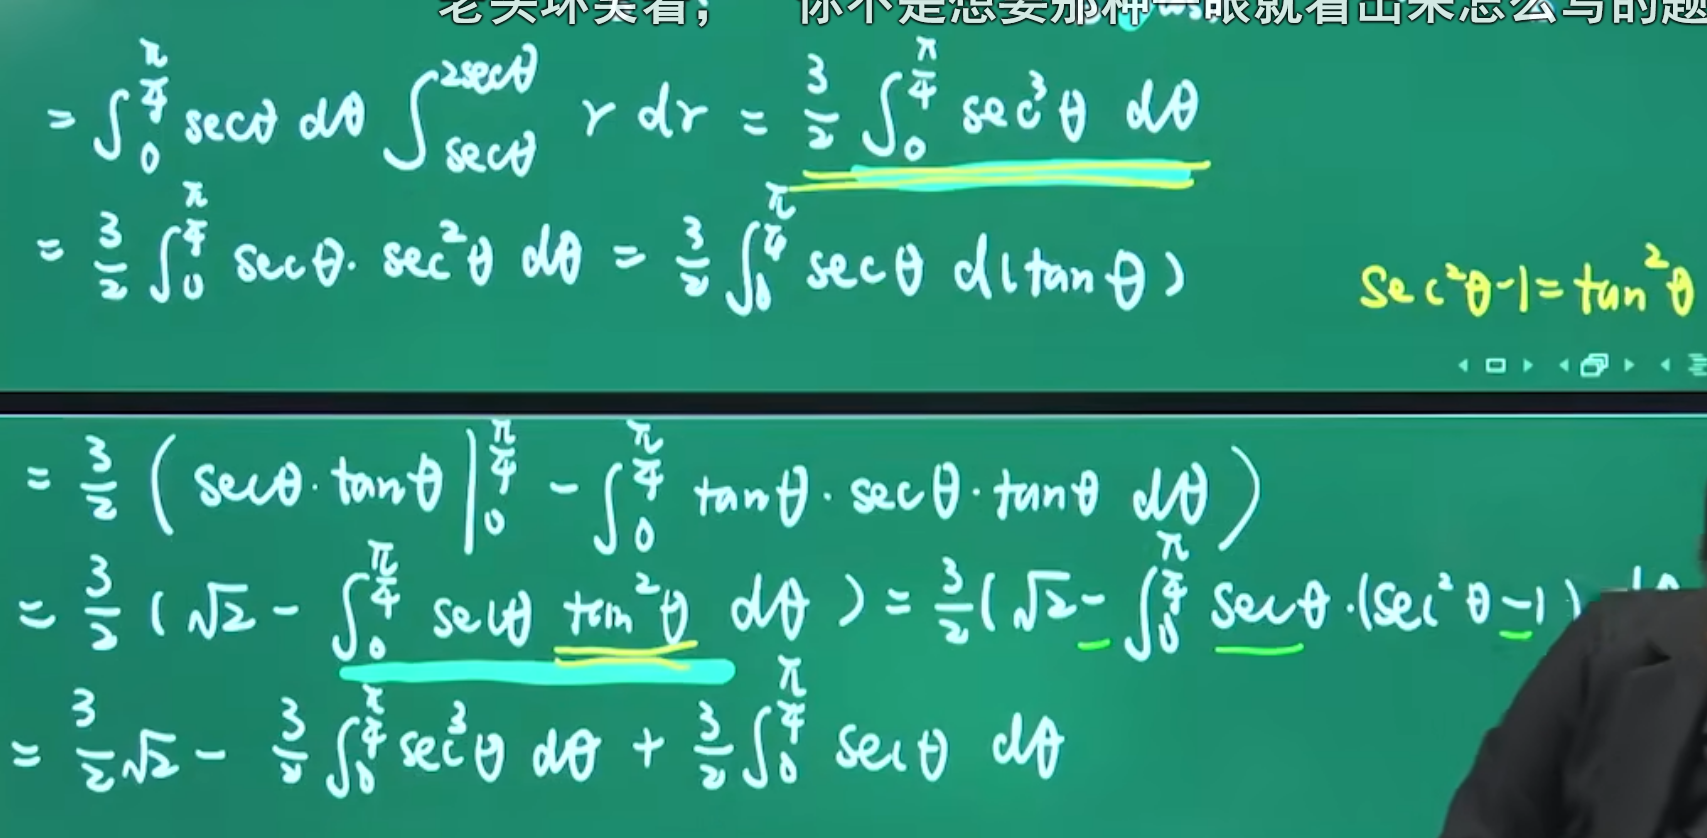 老头坏笑着； 你不是想要那种一眼就看出来怎么写的题
= ∫₀^{π/4} secθ dθ ∫_{secθ}^{2secθ} r dr = 3/2 ∫₀^{π/4} sec³θ dθ
= 3/2 ∫₀^{π/4} secθ · sec²θ dθ = 3/2 ∫₀^{π/4} secθ d(tanθ)
sec²θ-1=tan²θ
= 3/2 ( secθ · tanθ |₀^{π/4} - ∫₀^{π/4} tanθ · secθ · tanθ dθ )
= 3/2 ( √2 - ∫₀^{π/4} secθ tan²θ dθ ) = 3/2 ( √2 - ∫₀^{π/4} secθ · (sec²θ -1)
= 3/2 √2 - 3/2 ∫₀^{π/4} sec³θ dθ + 3/2 ∫₀^{π/4} secθ dθ